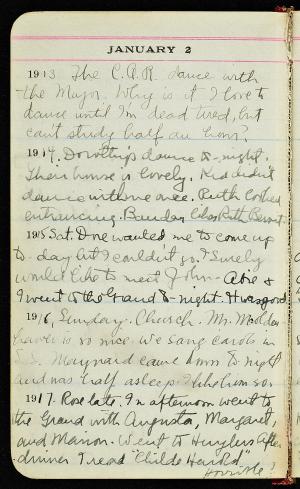 JANUARY 2
1913 The C.A.R. dance with
the Major. Why is it I love to
dance until I'm dead tired, but
can't study half an hour?
1914. Dorothy's dance to-night.
Their house is lovely. Kid didn't
dance with me once. Ruth looked
entrancing.
1915 Sat. Dore wanted me to come up
to-day but I couldn't go. I surely
would like to meet John. Abe &
I went to the Grand to-night. It was good
1916, Sunday. Church. Mr.
is so nice. We sang carols in
S.S. Maynard came down to-night
and was half asleep. I him so.
1917. Rose late. In afternoon went to
the Grand with Augusta, Margaret,
and Marion. Went to Huylers after
dinner I read "Childe Harold"
Horrible!